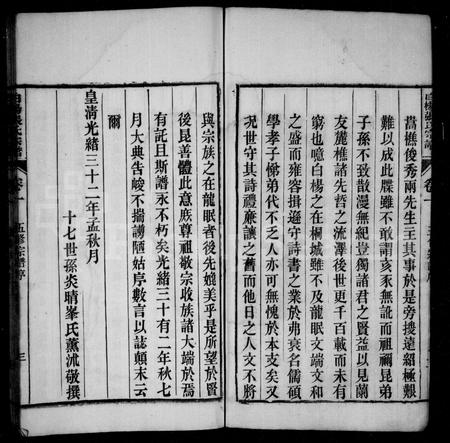 白楊張氏宗譜
卷一
巂樵俊秀兩先生主其事於是旁搜遠紹極艱
難以成此牒雖不敢謂亥豕無訛而祖禰昆弟
子孫不致散漫無紀豈獨諸君之賢益以見蘭
友麓樵諸先哲之流澤後世更千百載而未有
窮也噫白楊之在桐城雖不及龍眠文端文和
之盛而雍容揖遜守詩書之業於弗衰名儒碩
學孝子悌弟代不乏人亦可無愧於本支矣又
况世守其詩禮廉讓之舊而他日之人文不將
與宗族之在龍眠者後先媲美乎是所望於賢
後昆善體此意庶尊祖敬宗收族諸大端於焉
有託且斯譜永不朽矣光緒三十有二年秋七
月大典告峻不揣譾陋姑序數言以誌顛末云
爾
皇清光緒三十二年孟秋月
十七世孫炎晴峯氏薰沭敬撰
卷一
五修宗譜序
三